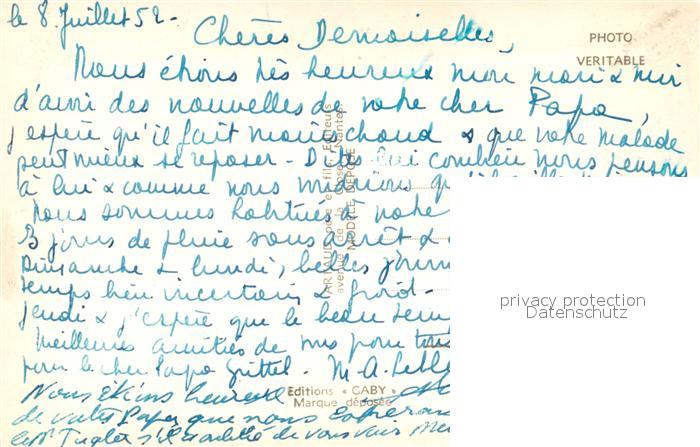 le 8. Juillet 52-
Chères Demoiselles,
PHOTO
VERITABLE
Nous étions très heureux mon mari & moi
d'avoir des nouvelles de votre cher Papa,
j'espère qu'il fait moins chaud & que votre malade
peut mieux se reposer - Dites lui combien nous pensons
à lui & comme nous
nous sommes habitués à notre
3 jours de pluie sans arrêt &
Dimanche & lundi, belles
temps bien incertain & froid-
jeudi & j'espère que le beau
Meilleures amitiés de nous pour tous
pour le cher Papa
Nous étions heureux
de votre Papa que nous
de vous voir
ARNAUD père et fils, Editeurs
avenue de la Close, Nantes
MODÈLE DÉPOSÉ
Editions « GABY »
Marque déposée
privacy protection
Datenschutz